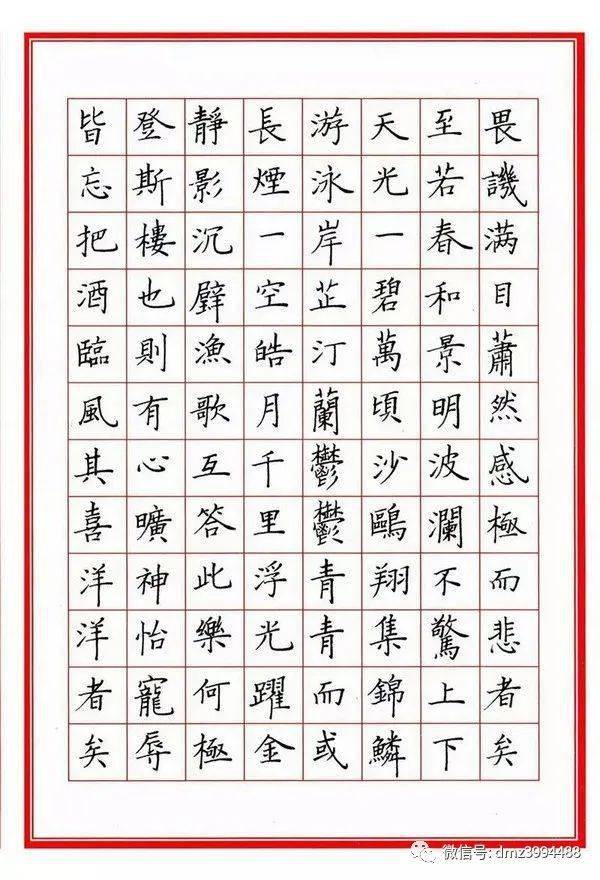 畏譏满目蕭然感極而悲者矣
至若春和景明波瀾不驚上下
天光一碧萬頃沙鷗翔集錦鱗
游泳岸芷汀蘭鬱鬱青青而或
長煙一空皓月千里浮光躍金
靜影沉璧漁歌互答此樂何極
登斯樓也則有心曠神怡寵辱
皆忘把酒臨風其喜洋洋者矣
微信号: dmz3994488